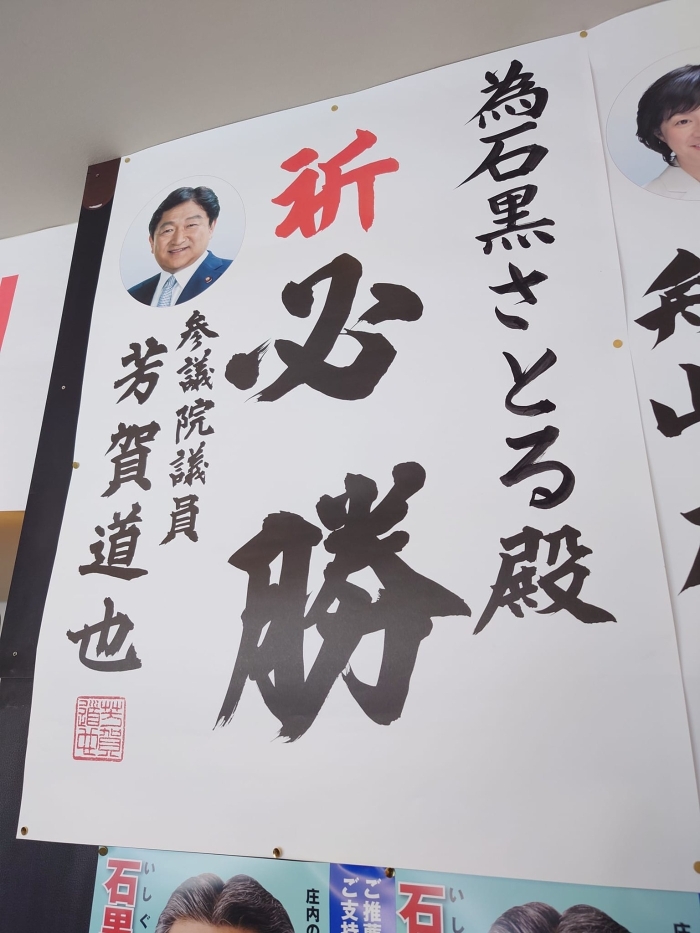 為石黒さとる殿
祈
必勝
参議院議員
芳賀道也
芳賀
道也
石黒
いしぐ
庄内の
ご推薦
ご支持
石
いし
庄